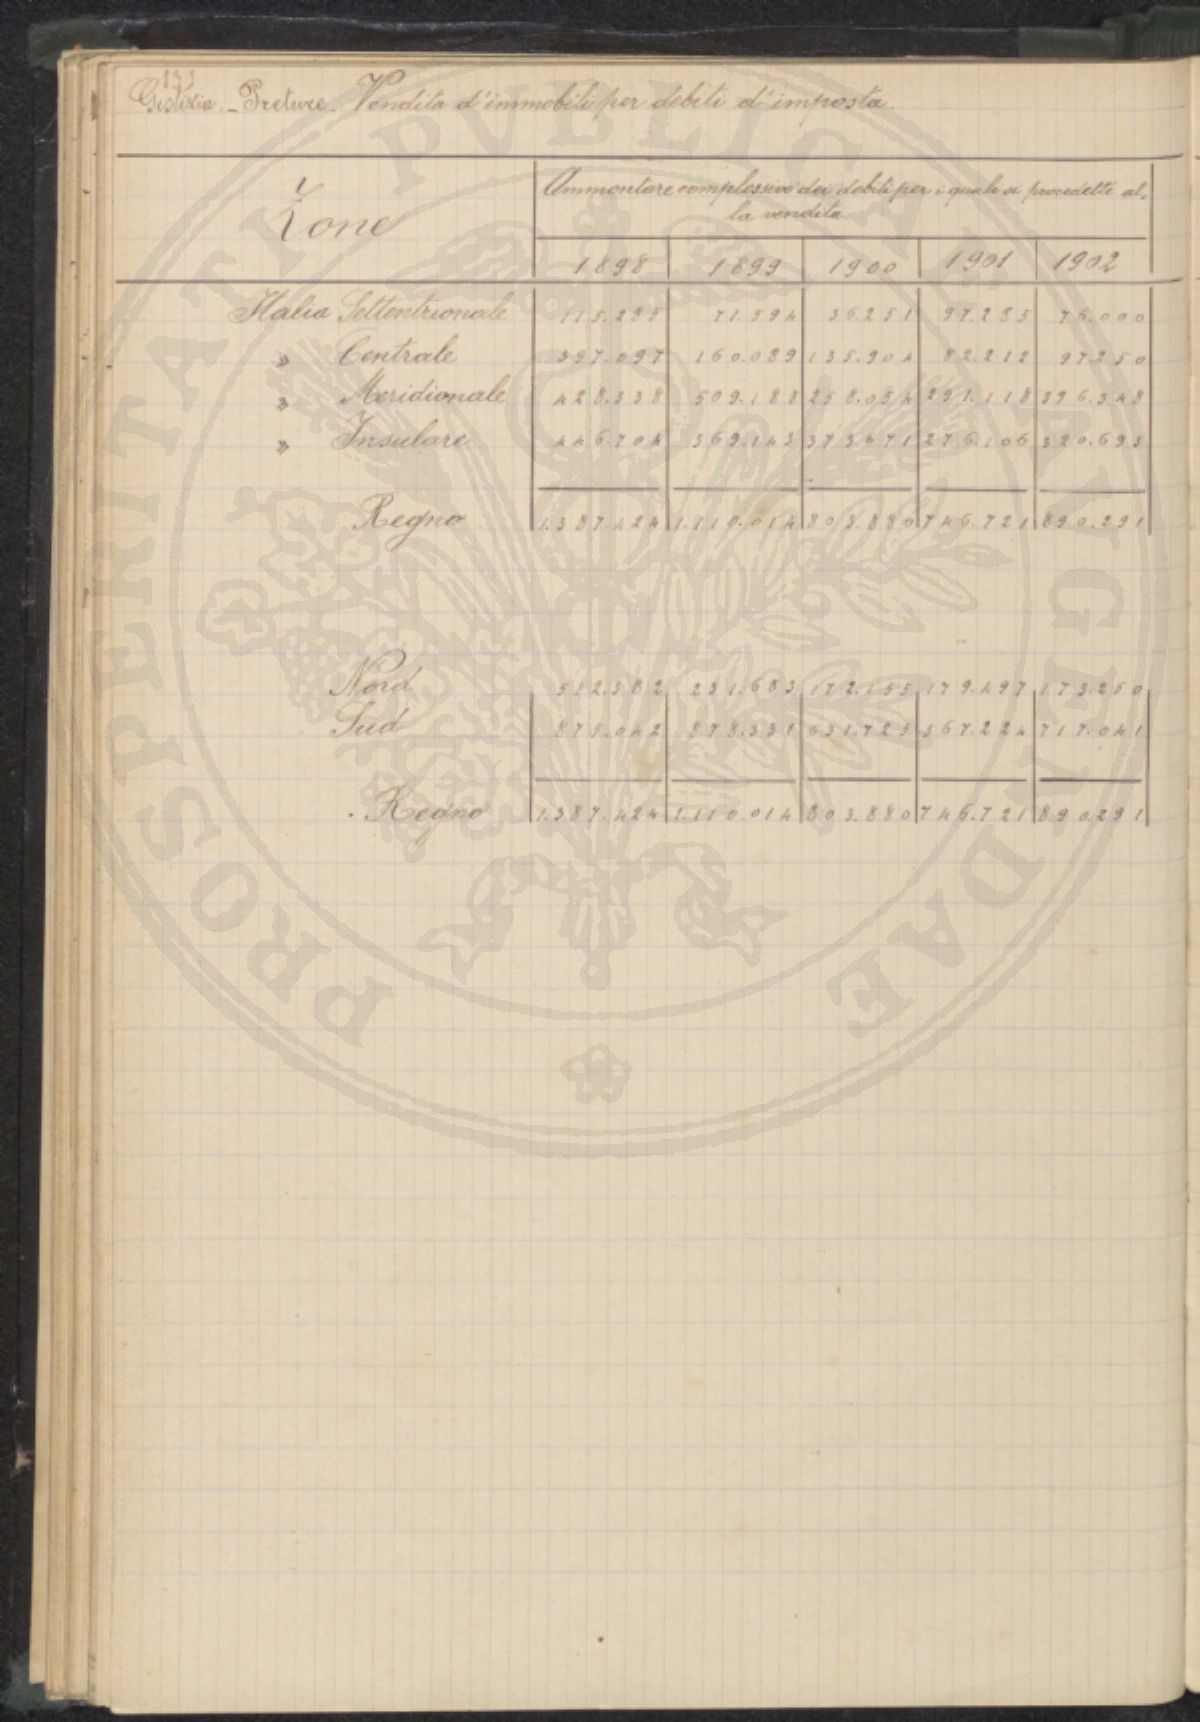 173
Giustizia - Preture - Vendita d'immobili per debiti d'imposta.
Zone
Ammontare complessivo dei debiti per i quali si procedette al-
la vendita
1898 1899 1900 1901 1902
Italia Settentrionale 115.285 71.594 36.251 97.285 76.000
» Centrale 397.097 160.089 135.904 82.212 97.250
» Meridionale 428.338 509.188 258.054 291.118 396.348
» Insulare 446.704 369.143 373.671 276.106 320.693
Regno 1.387.424 1.110.014 803.880 746.721 890.291
Nord 512.382 231.683 172.155 179.497 173.250
Sud 875.042 878.331 631.725 567.224 717.041
Regno 1.387.424 1.110.014 803.880 746.721 890.291
PROSPERITATI PUBLICAE AUGENDAE